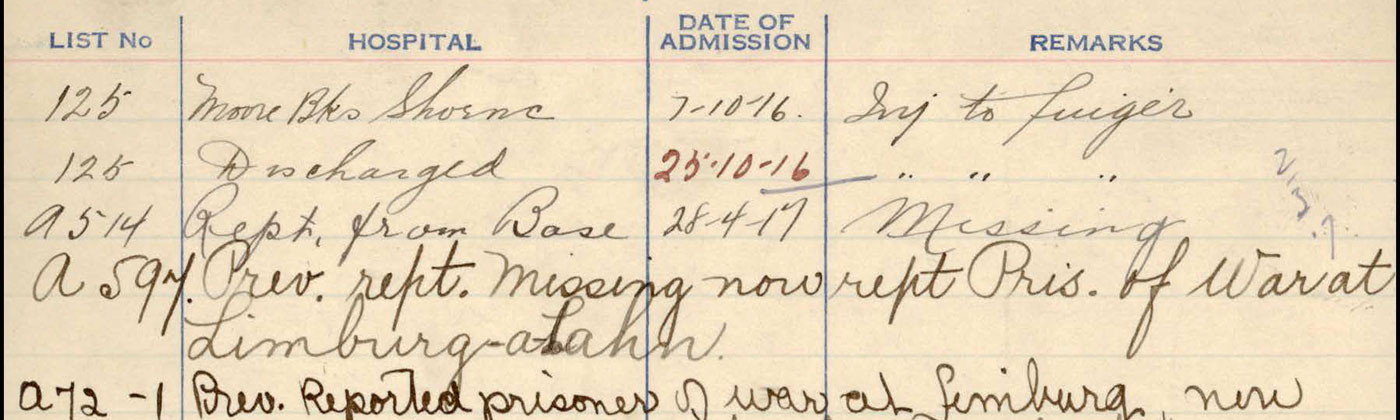 LIST No HOSPITAL DATE OF ADMISSION REMARKS
125 Moore Bks Shornc 7-10-16. Inj to finger
125 Discharged 25-10-16 " " "
A514 Rept. from Base 28-4-17 Missing
A597. Prev. rept. Missing now rept Pris. of War at
Limburg-a-Lahn.
A72-1 Prev. Reported prisoner of war at Limburg, now